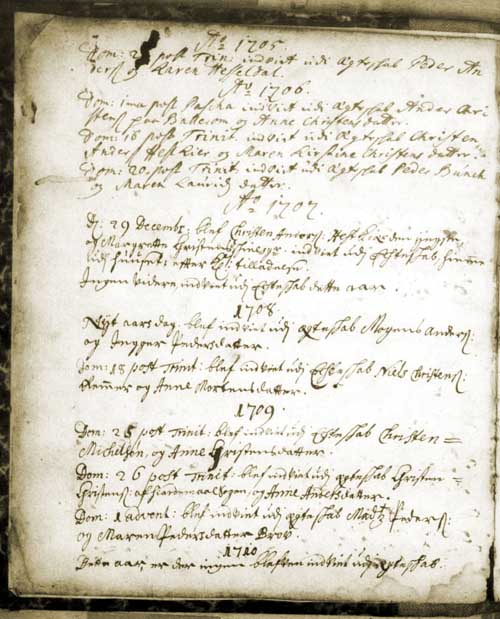 Ao 1705.
Dom: 2 post Trin: indviet udi Ægteskab Peder An
ders og Karen Hesseldal.
Ao 1706.
Dom: 1ma post Pascha indviet udi Ægteskab Anders Chri
stens paa Ballerom og Anne Christens datter.
Dom: 16 post Trinit. indviet udi Ægteskab Christen
Anders Hestkier og Maren Kirstine Christens datter.
Dom: 20. post Trinit. indviet udi Ægteskab Peder Bunch
og Maren Laurids datter.
Ao 1707.
D: 29 Decembr: blef Christen Anders: Hestkier den yngste
og Margrette Christensdatter indviet udi Ecteskab hiemme
udi huuset: efter tilladelse.
Ingen videre indviet udj Ecteskab dette aar.
1708.
Nyt aars dag. blef indviet udj ægteskab Mogens Anders:
og Inger Pedersdatter.
Dom: 18 post Trint: blef indviet udj Ecteskab Niels Christens:
og Anne Mortensdatter.
1709
Dom: 25 post Trinit: blef indviet udj Ecteskab Christen =
Michelsøn, og Anne Christensdatter.
Dom: 26 post Trinit: blef indviet udj ægteskab Christen =
Christens: af sogn, og Anne datter.
Dom: 1 advent: blef indviet udj ægteskab Madtz Peders:
og Maren Pedersdatter Brov.
1710
Dette aar er der ingen blefven indviet udj ægteskab.